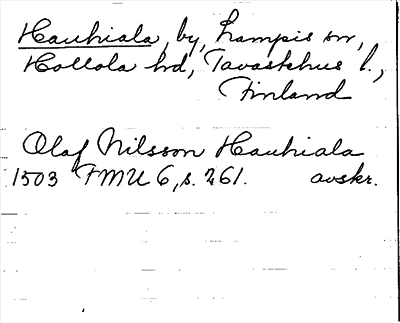 Hauhiala, by, Lampis sn,
Hollola hd, Tavastehus l.,
Finland
Olaf Nilsson Hauhiala
1503 FMU 6, s. 261. avskr.